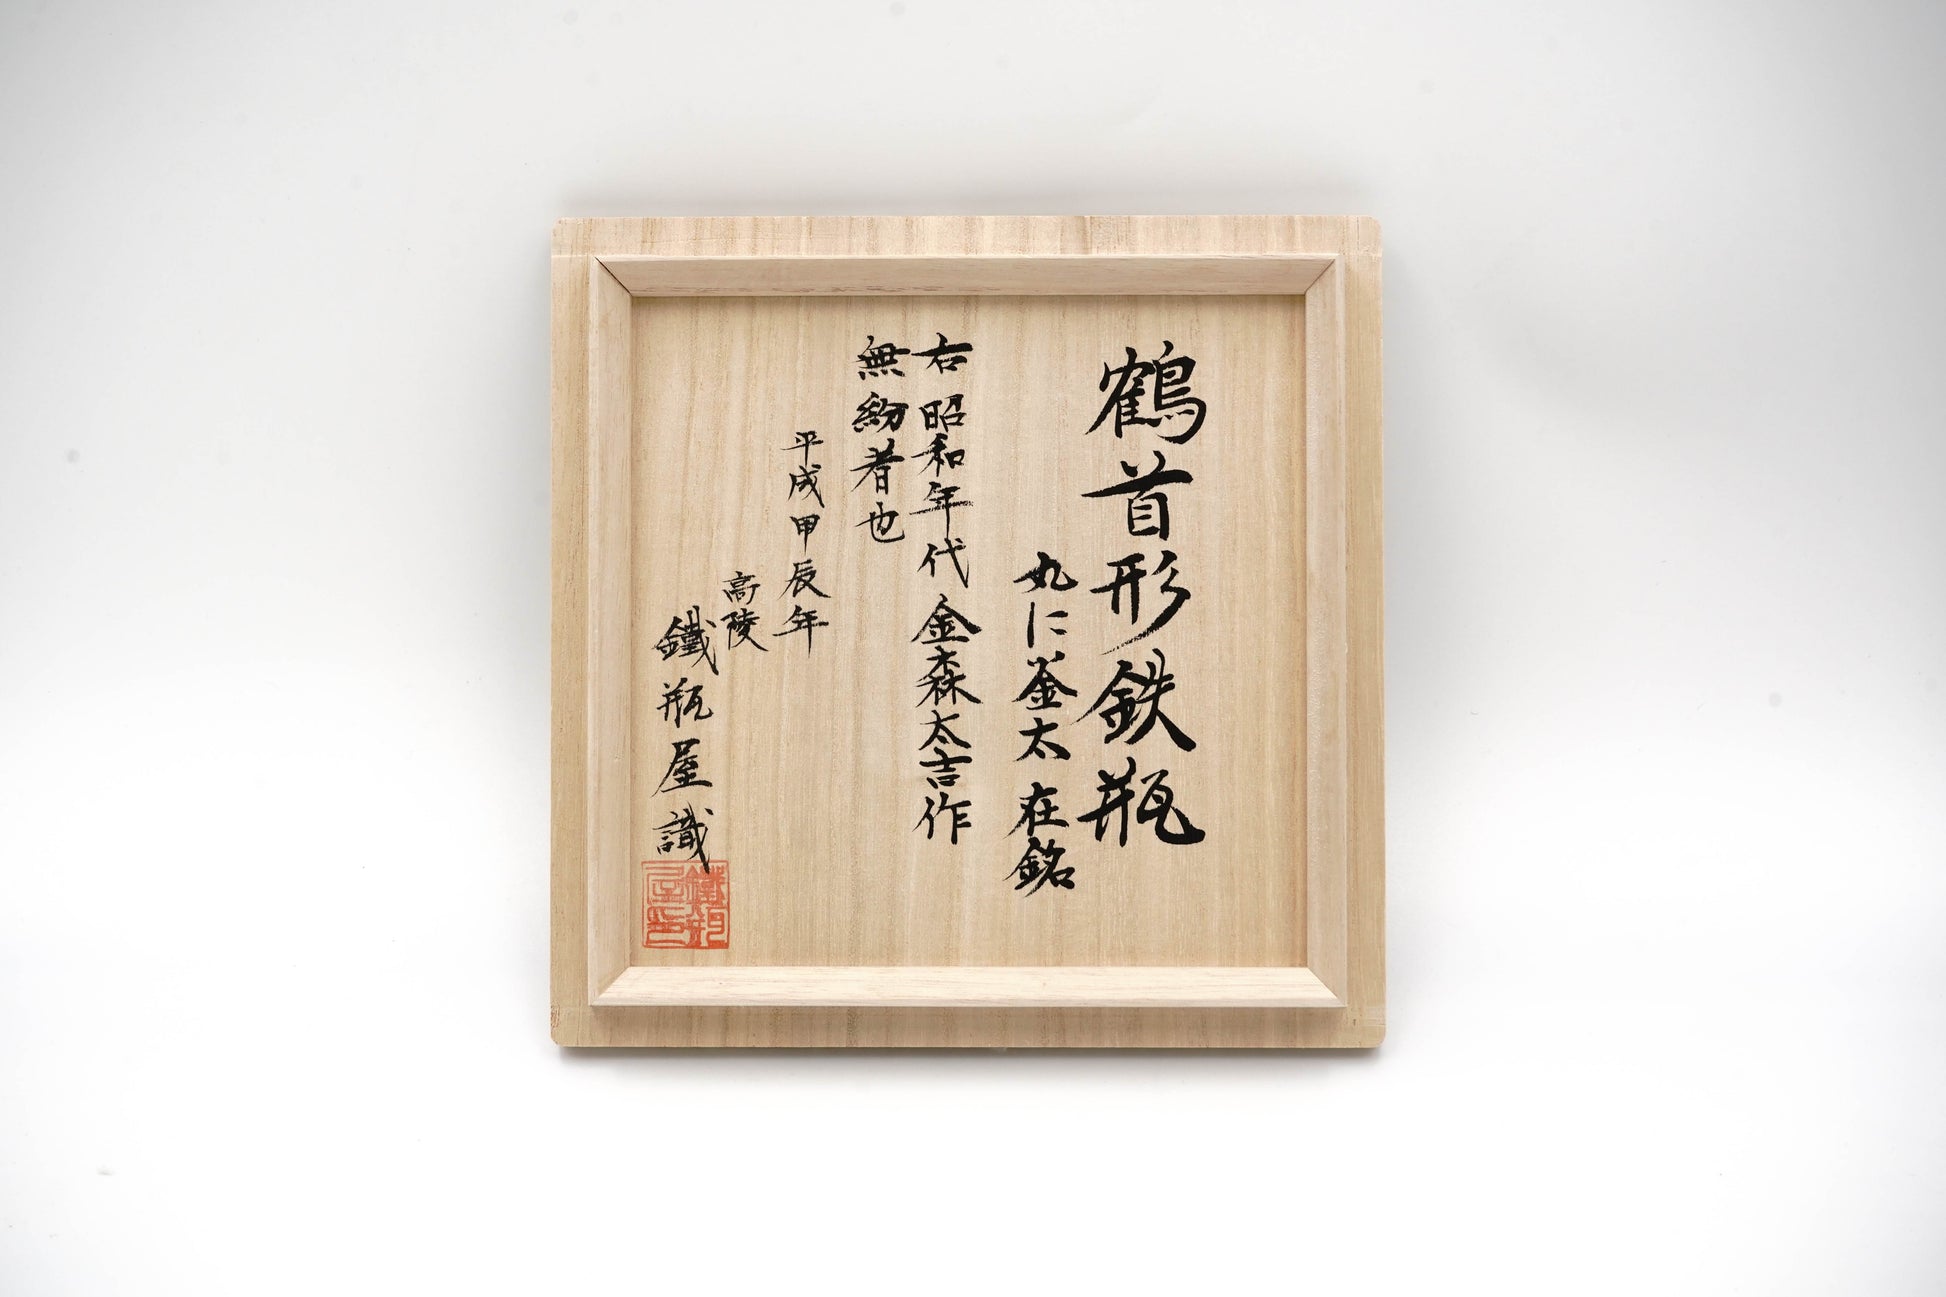 鶴首形鉄瓶
丸に釜太 在銘
右 昭和年代 金森太吉作
無紛者也
平成甲辰年
高陵
鐵瓶屋識
鐵瓶屋印